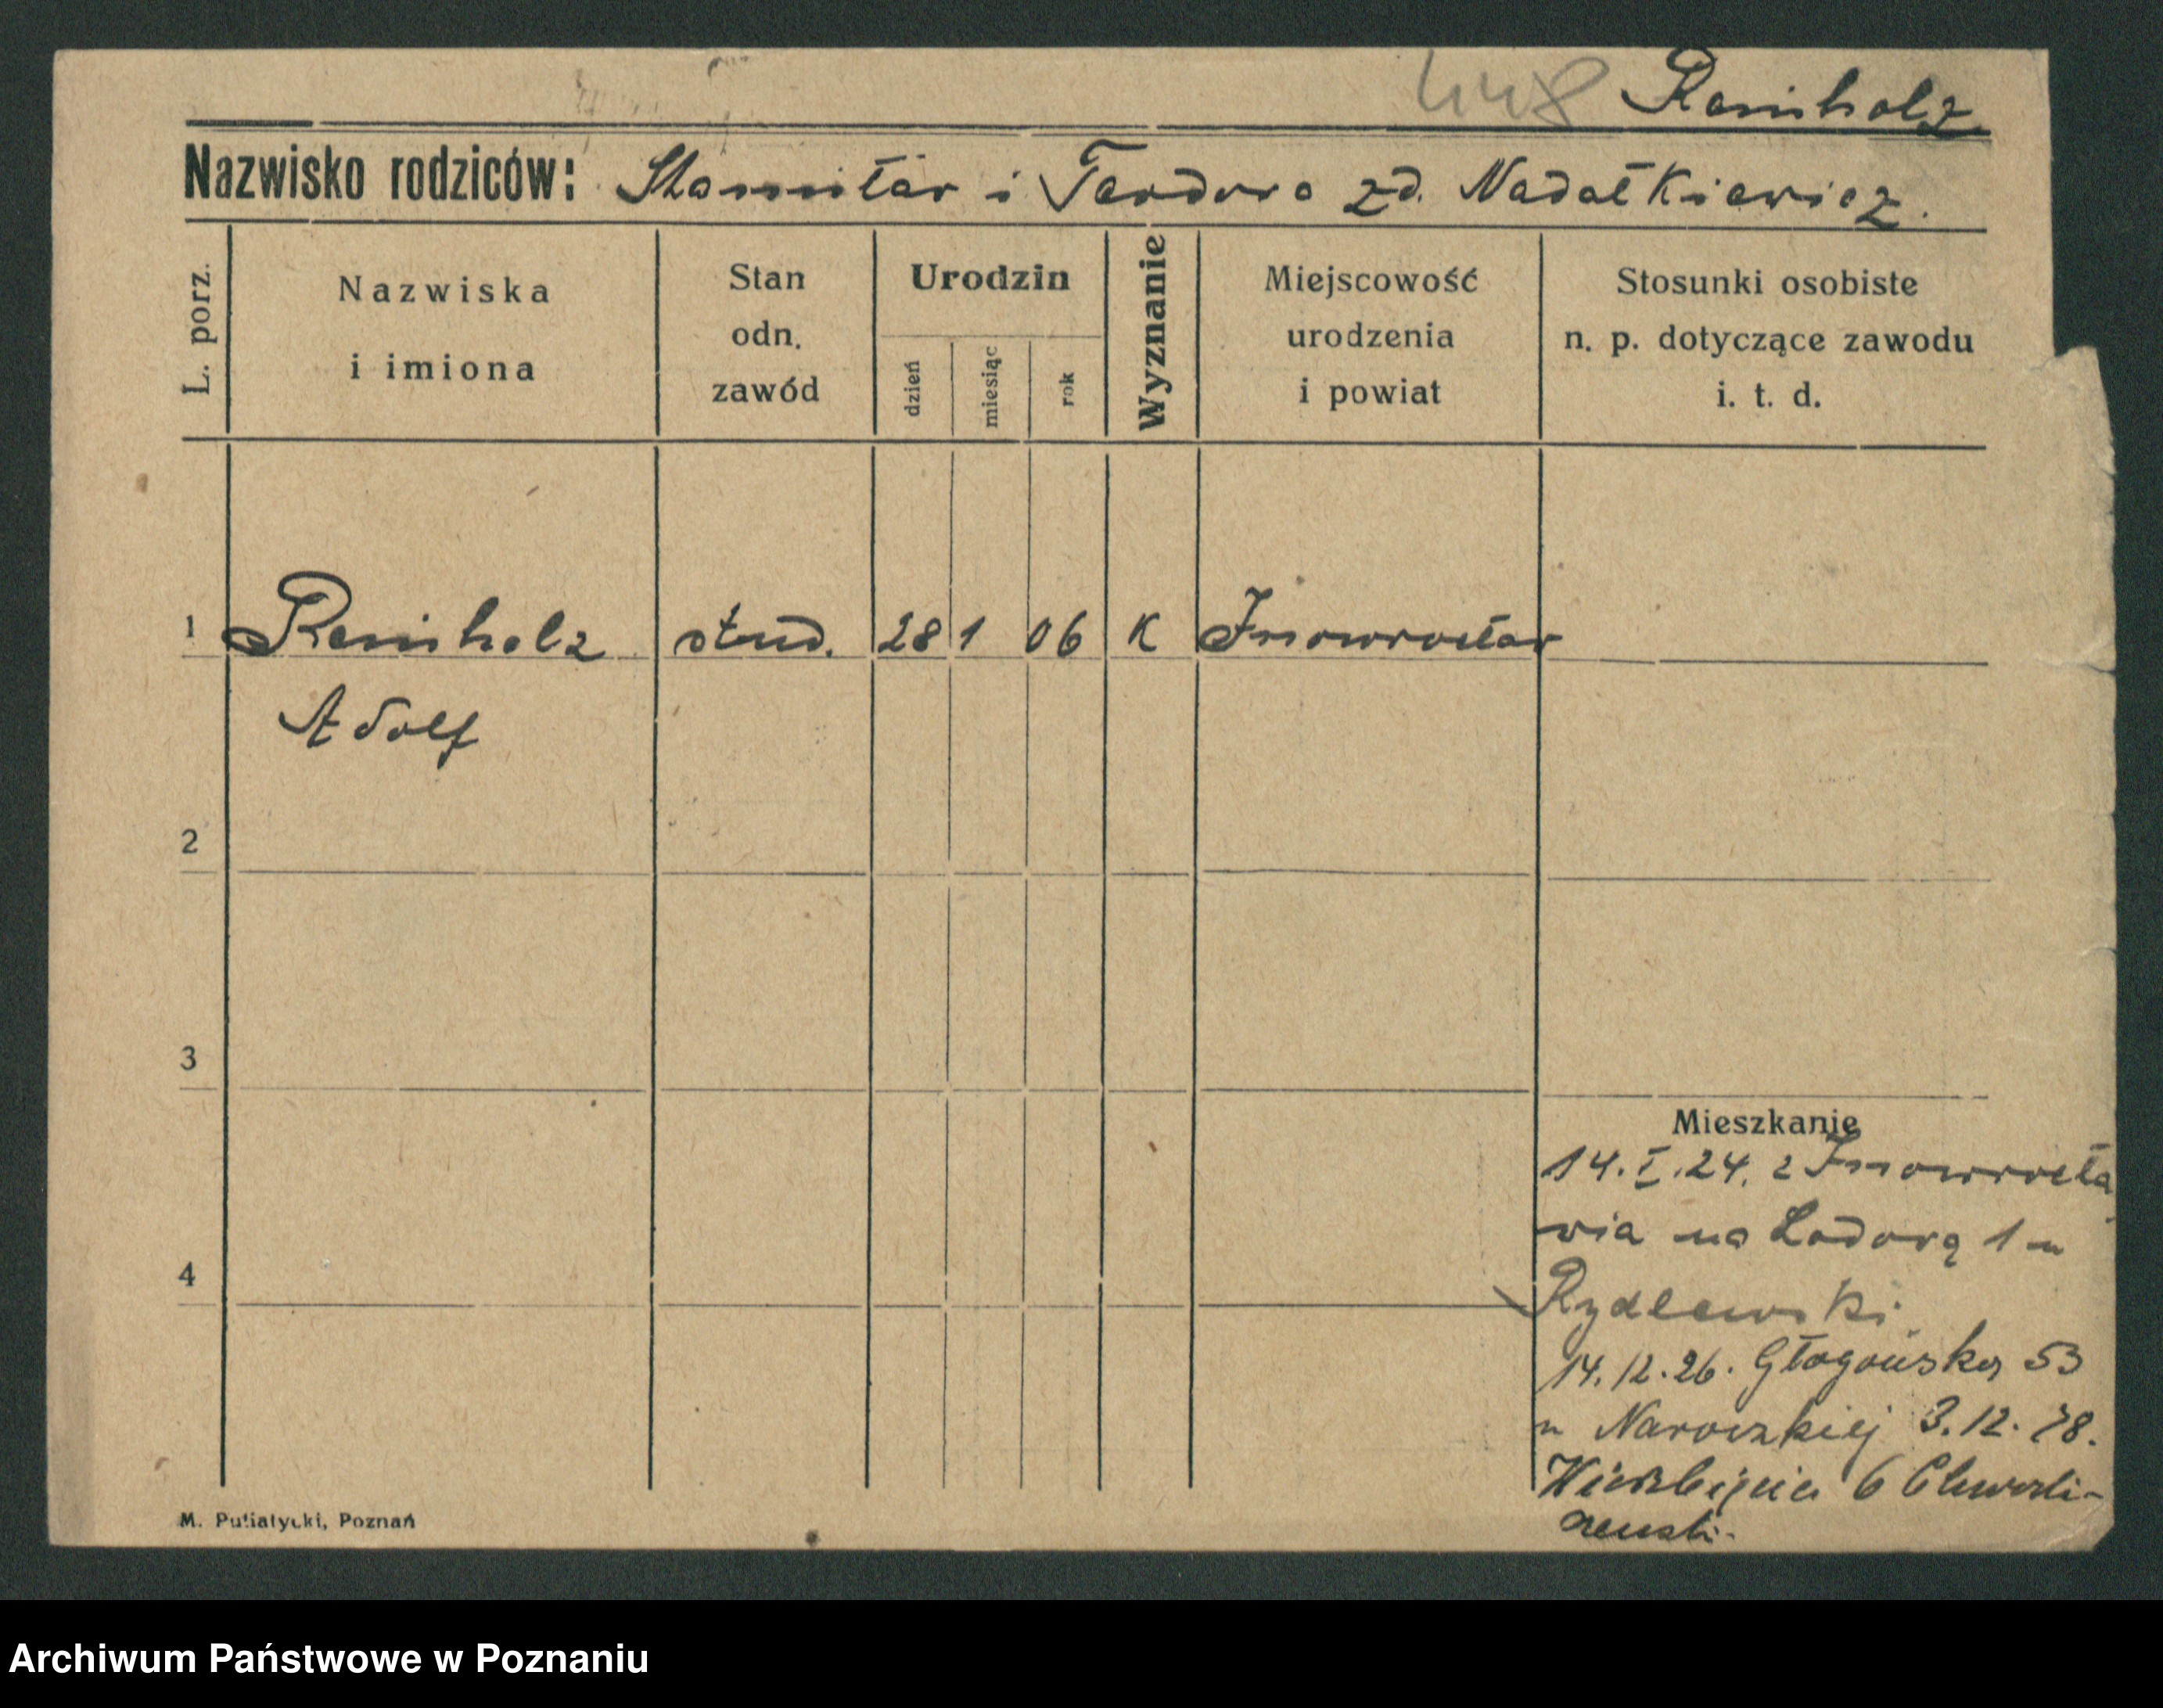 Remholz
Nazwisko rodziców: Stanisław i Teodora zd. Nadolkiewicz.
L. porz.
Nazwiska
i imiona
Stan
odn.
zawód
Urodzin
dzień
miesiąc
rok
Wyznanie
Miejscowość
urodzenia
i powiat
Stosunki osobiste
n. p. dotyczące zawodu
i. t. d.
1 Remholz stud. 28 1 06 K Inowrocław
Adolf
2
3
4
Mieszkanie
14.I.24. z Inowrocła
wia na Lodową 1 u
Rydlewski
14.12.26. Głogowska 53
u 3.12.28.
Wierzbięcice 6
M. Putiatycki, Poznań
Archiwum Państwowe w Poznaniu